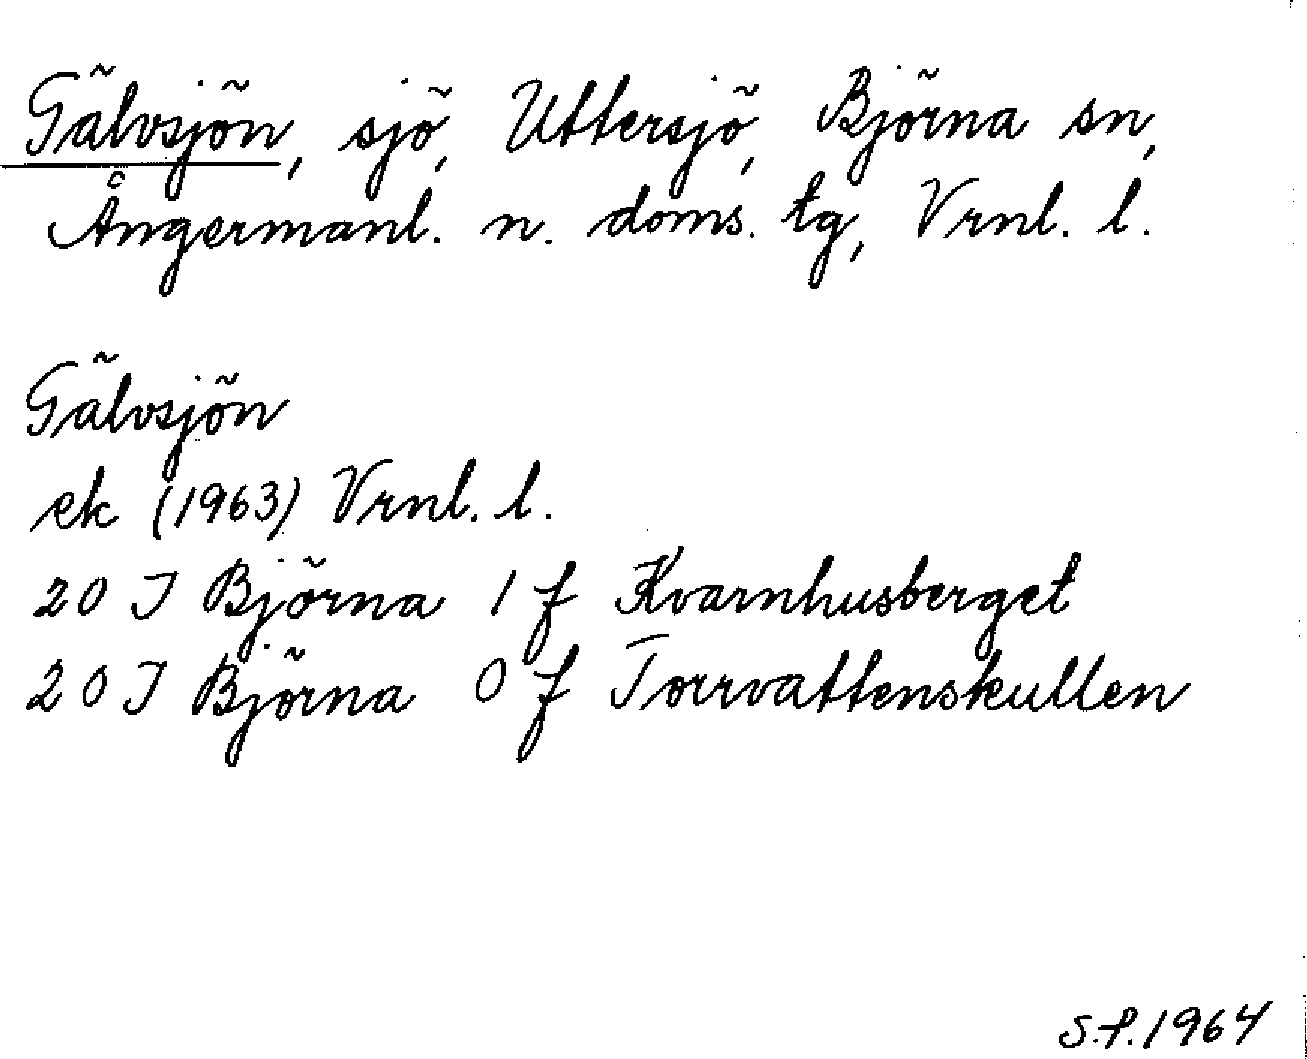 Gälvsjön, sjö, Uttersjö, Björna sn,
Ångermanl. n. doms. tg, Vrnl. l.
Gälvsjön
ek (1963) Vrnl. l.
20 I Björna 1 f Kvarnhusberget
20 I Björna 0 f Torrvattenskullen
S.P. 1964